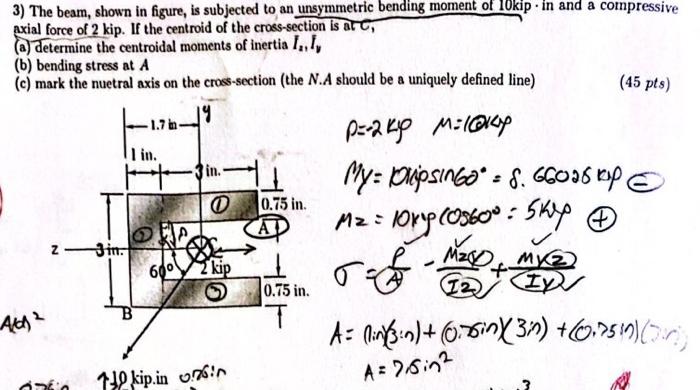 3) The beam, shown in figure, is subjected to an unsymmetric bending moment of 10kip · in and a compressive
axial force of 2 kip. If the centroid of the cross-section is at C,
(a) determine the centroidal moments of inertia Īz, Īy
(b) bending stress at A
(c) mark the nuetral axis on the cross-section (the N.A should be a uniquely defined line)
(45 pts)
y
1.7 in
1 in.
3 in.
0.75 in.
A
z
3 in.
60°
2 kip
0.75 in.
B
10 kip.in
P=-2 kip M=10kip
My= 10kip sin60° = 8.66025 kip -
Mz = 10kip cos60° = 5kip +
σ = P/A - Mzy/Iz + Myz/Iy
A= (1in)(3in) + (0.75in)(3in) + (0.75in)(3in)
A = 7.5in²